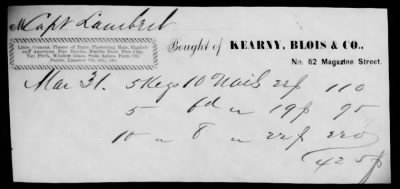 M Capt Lambert
Lime, Cement, Plaster of Paris, Plastering Hair, English
and American Fire Bricks, Marble Dust, Fire Clay,
Tar, Pitch, Window Glass, Soda Ashes, Paints, Oil,
Bought of KEARNY, BLOIS & CO.,
No. 62 Magazine Street.
Mar 31. 5 Kegs 10d Nails 22f 110
5 6d " 19f 95
10 " 8 " 22f 220
425f